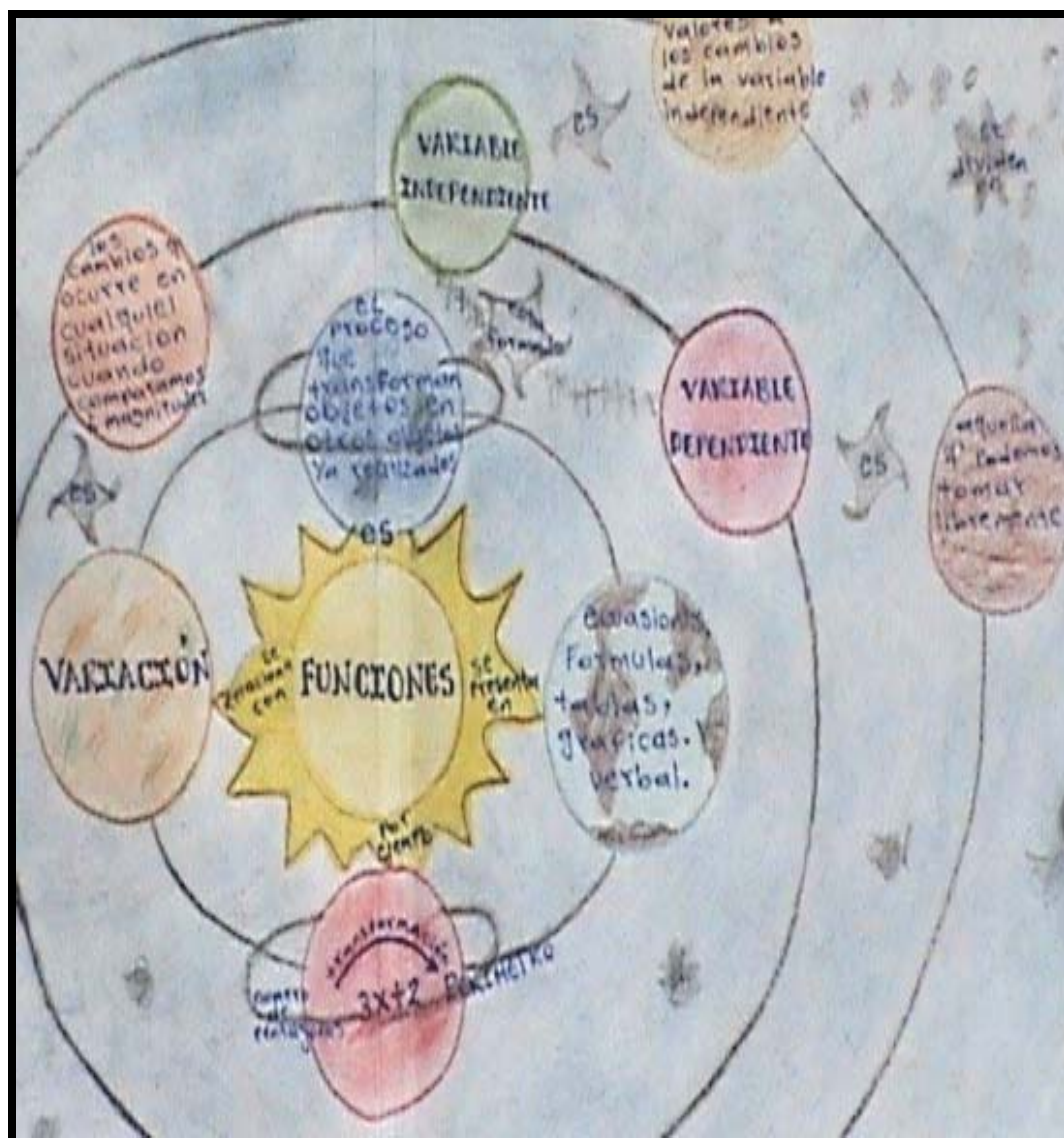 valores a
los cambios
de la variable
independiente
es
VARIABLE
INDEPENDIENTE
se
dividen
en
los
cambios q
ocurre en
cualquier
situacion
cuando
comparamos
magnitudes
es
el
proceso
que
transforman
objetos en
otros objetos
ya realizados
esta
formado
VARIABLE
DEPENDIENTE
es
aquella
q podemos
tomar
libremente
es
VARIACIÓN
se
relaciona
con
FUNCIONES
se
presentan
en
ecuasiones,
Formulas,
tablas,
graficas.
verbal.
por
ejemplo
transformación
3x+2
PERIMETRO
de